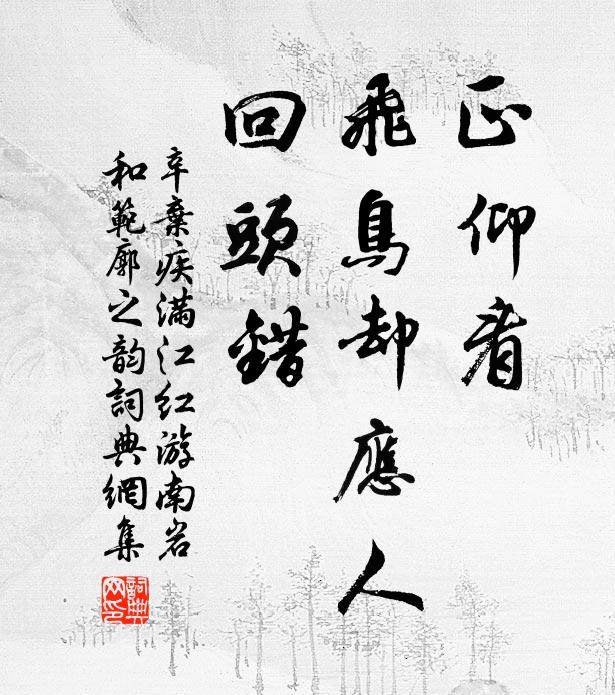 正仰看
飛鳥却應人
回頭錯
辛棄疾滿江紅游南岩
和範廓之韵詞典網集